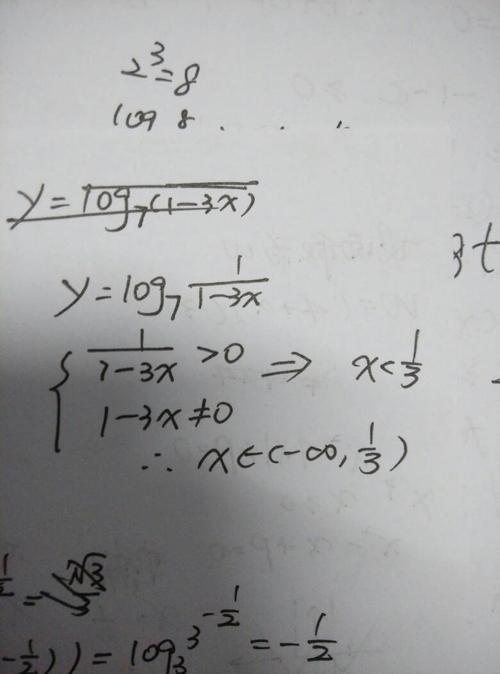 2³=8
log 8 . . .
y=log₇(1-3x)
y=log₇ 1/(1-3x)
{ 1/(1-3x) >0 ⇒ x<1/3
1-3x≠0
∴ x∈(-∞, 1/3)
-1/2)) = log₃3^(-1/2) = -1/2